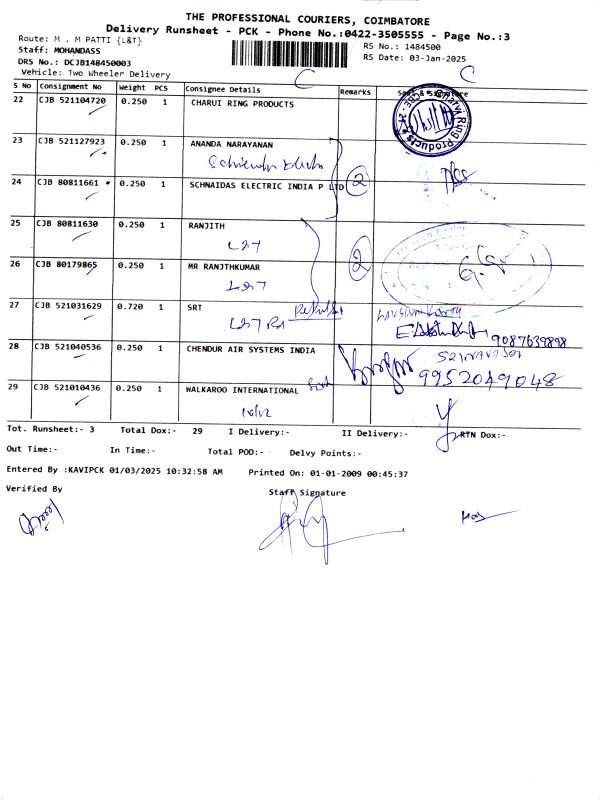 THE PROFESSIONAL COURIERS, COIMBATORE
Delivery Runsheet - PCK - Phone No.:0422-3505555 - Page No.:3
Route: M . M PATTI {L&T}
RS No.: 1484500
Staff: MOHANDASS
RS Date: 03-Jan-2025
DRS No.: DCJB148450003
Vehicle: Two Wheeler Delivery
C C
S No Consignment No Weight PCS Consignee Details Remarks Seal & Signature
22 CJB 521104720 0.250 1 CHARUI RING PRODUCTS
23 CJB 521127923 0.250 1 ANANDA NARAYANAN
24 CJB 80811661 0.250 1 SCHNAIDAS ELECTRIC INDIA P LTD 2
25 CJB 80811630 0.250 1 RANJITH
L&T
2
26 CJB 80179865 0.250 1 MR RANJTHKUMAR
L&T
27 CJB 521031629 0.720 1 SRT
L&T
9087639898
28 CJB 521040536 0.250 1 CHENDUR AIR SYSTEMS INDIA
9952049048
29 CJB 521010436 0.250 1 WALKAROO INTERNATIONAL
Tot. Runsheet:- 3 Total Dox:- 29 I Delivery:- II Delivery:- RTN Dox:-
Out Time:- In Time:- Total POD:- Delvy Points:-
Entered By :KAVIPCK 01/03/2025 10:32:58 AM Printed On: 01-01-2009 00:45:37
Verified By Staff Signature